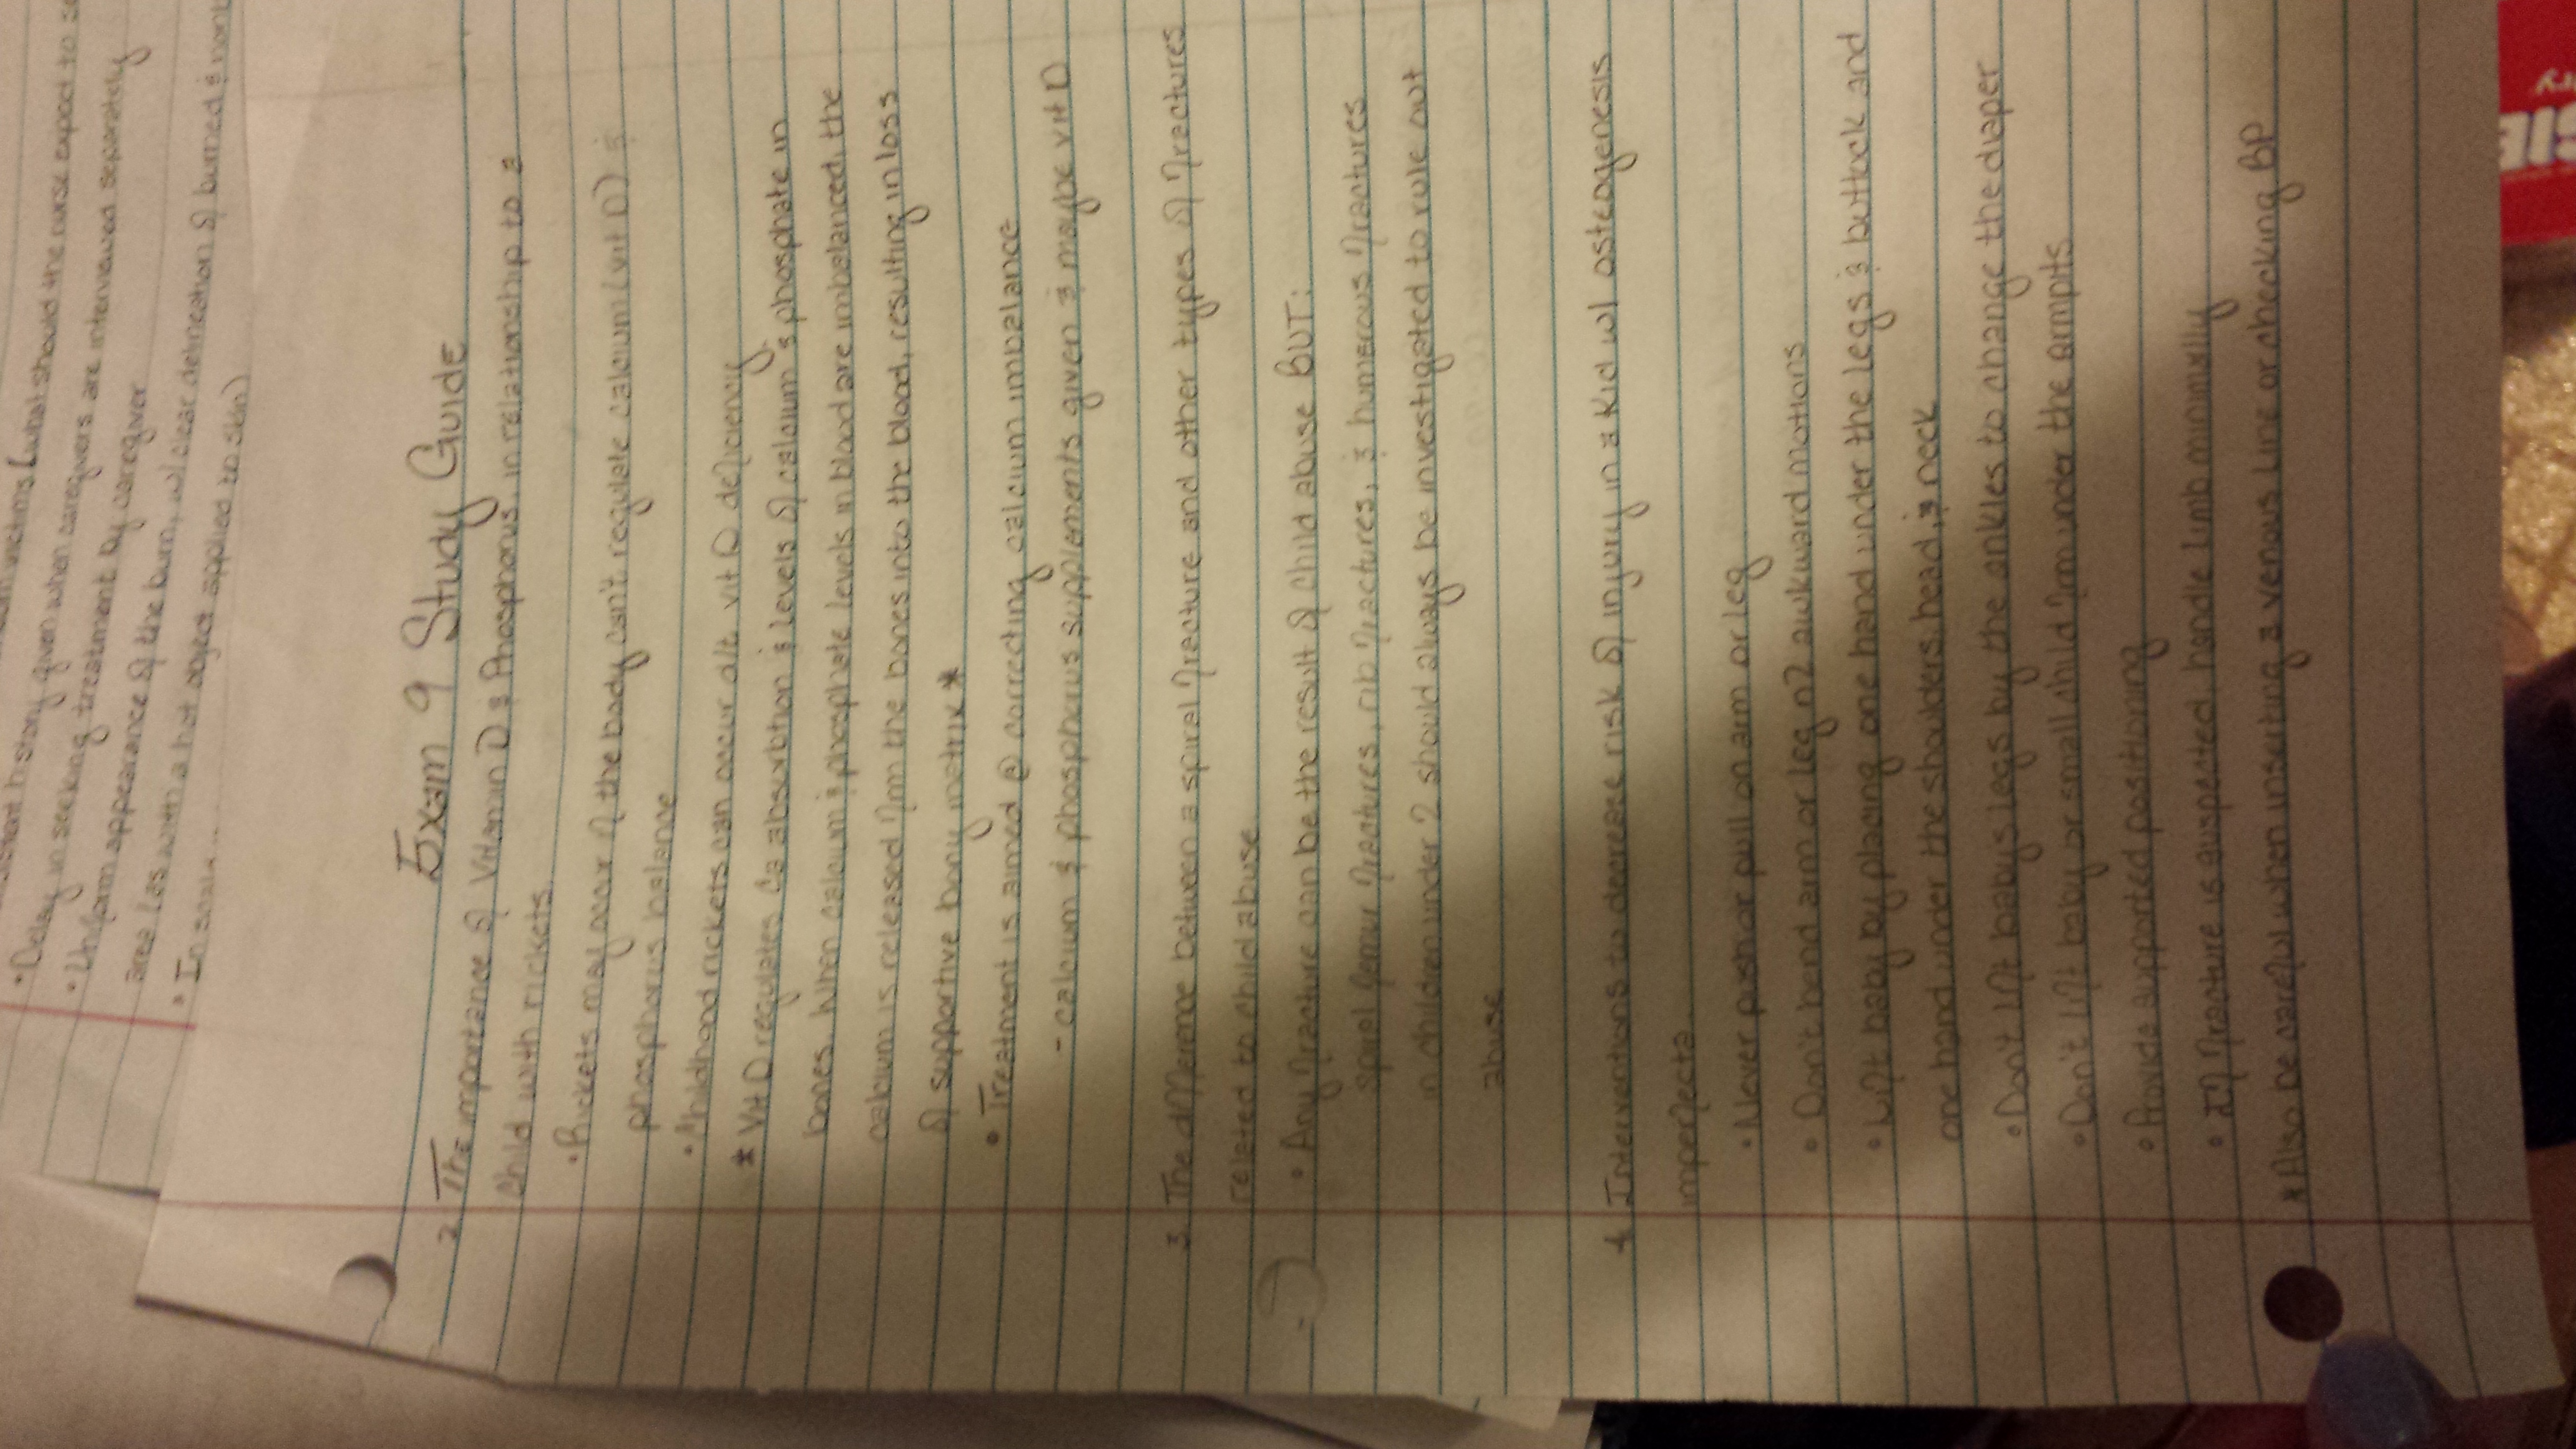 should the nurse expect to
· Delay in seeking treatment by caregiver
history given when caregivers are interviewed separately
· Uniform appearance of the burn, w/ clear delineation of burned &
area (as with a hot object applied to skin)
· In
Exam 9 Study Guide
2. The importance of Vitamin D & Phosphorus, in relationship to a
child with rickets.
· Rickets may occur if the body can't regulate calcium (vit D) &
phosphorus balance
· Childhood rickets can occur d/t vit D deficiency.
* Vit D regulates Ca absorbtion & levels of calcium & phosphate in
bones. When calcium & phosphate levels in blood are imbalanced, the
calcium is released from the bones into the blood, resulting in loss
of supportive bony matrix *
· Treatment is aimed @ correcting calcium imbalance
- calcium & phosphorus supplements given & maybe vit D
3. The difference between a spiral fracture and other types of fractures
related to child abuse
· Any fracture can be the result of child abuse BUT:
spiral femur fractures, rib fractures, & humerous fractures
in children under 2 should always be investigated to rule out
abuse
4. Interventions to decrease risk of injury in a kid w/ osteogenesis
imperfecta.
· Never push or pull on arm or leg
· Don't bend arm or leg n2 awkward motions
· Lift baby by placing one hand under the legs & buttock and
one hand under the shoulders, head, & neck
· Don't lift babys legs by the ankles to change the diaper
· Don't lift baby or small child from under the armpits
· Provide supported positioning
· If fracture is suspected, handle limb minimally
* Also be careful when inserting a venous line or checking BP